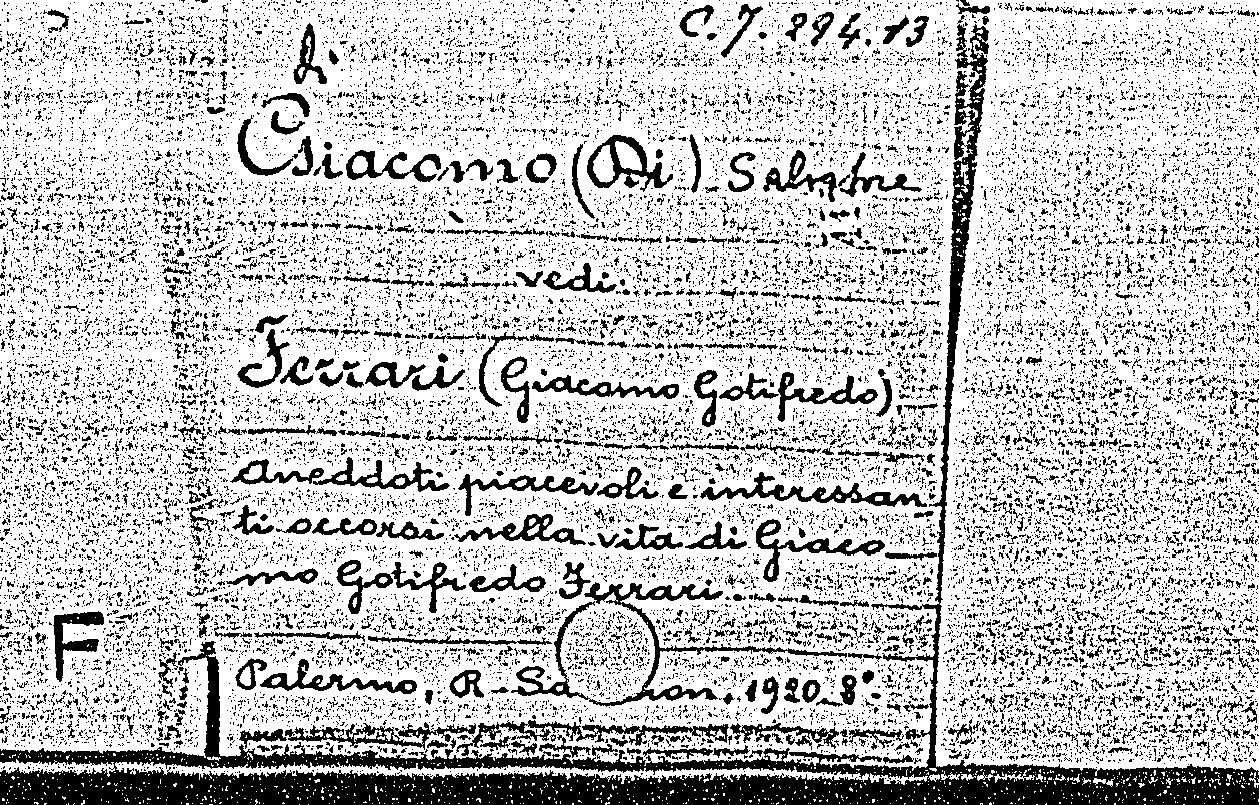 C.7.294.13
di
Giacomo (Di). Salvatore
vedi
Ferrari (Giacomo Gotifredo)
Aneddoti piacevoli e interessan
ti occorsi nella vita di Giaco
mo Gotifredo Ferrari
F
Palermo, R. Sa on. 1920. 8°.